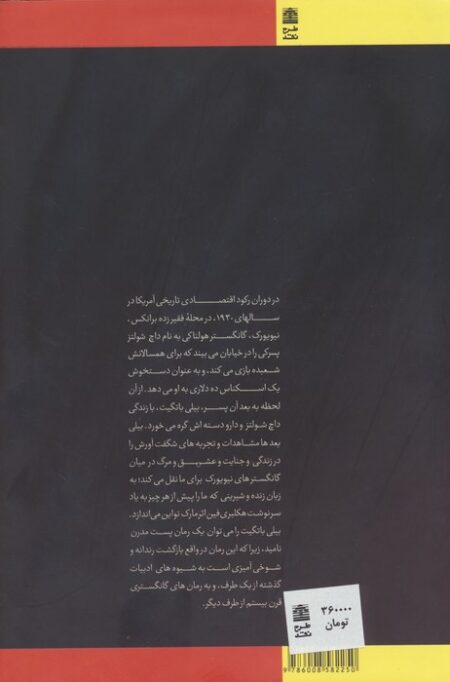 طرح
نقد
در دوران رکود اقتصـــادی تاریخی آمریکا در
ســالهای ۱۹۳۰، در محلهٔ فقیر زده برانکس،
نیویورک، گانگستر هولناکی به نام داچ شولتز
پسرکی را در خیابان می بیند که برای همسالانش
شعبده بازی می کند، و به عنوان دستخوش
یک اسکناس ده دلاری به او می دهد. از آن
لحظه به بعد آن پســر، بیلی باتگیت، با زندگی
داچ شولتز و دارو دسته اش گره می خورد. بیلی
بعد ها مشاهدات و تجربه های شگفت آورش را
در زندگی و جنایت و عشــق و مرگ در میان
گانگسترهای نیویورک برای ما نقل می کند؛ به
زبان زنده و شیرینی که ما را پیش از هر چیز به یاد
سرنوشت هکلبری فین اثر مارک تواین می اندازد.
بیلی باتگیت را می توان یک رمان پست مدرن
نامید، زیرا که این رمان در واقع بازگشت رندانه و
شوخی آمیزی است به شیوه های ادبیات
گذشته از یک طرف، و به رمان های گانگستری
قرن بیستم از طرف دیگر.
۳۶۰۰۰۰
تومان
9 786008 582250